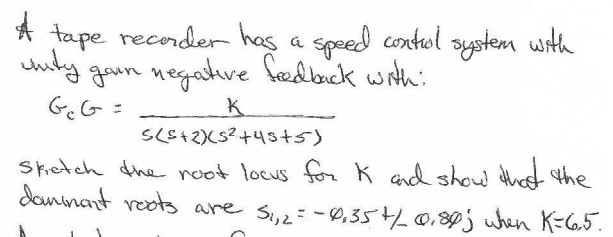 A tape recorder has a speed control system with
unity gain negative feedback with:
GcG = K
s(s+2)(s²+4s+5)
Sketch the root locus for K and show that the
dominant roots are s1,2 = -0.35 +/- 0.80j when K=6.5.